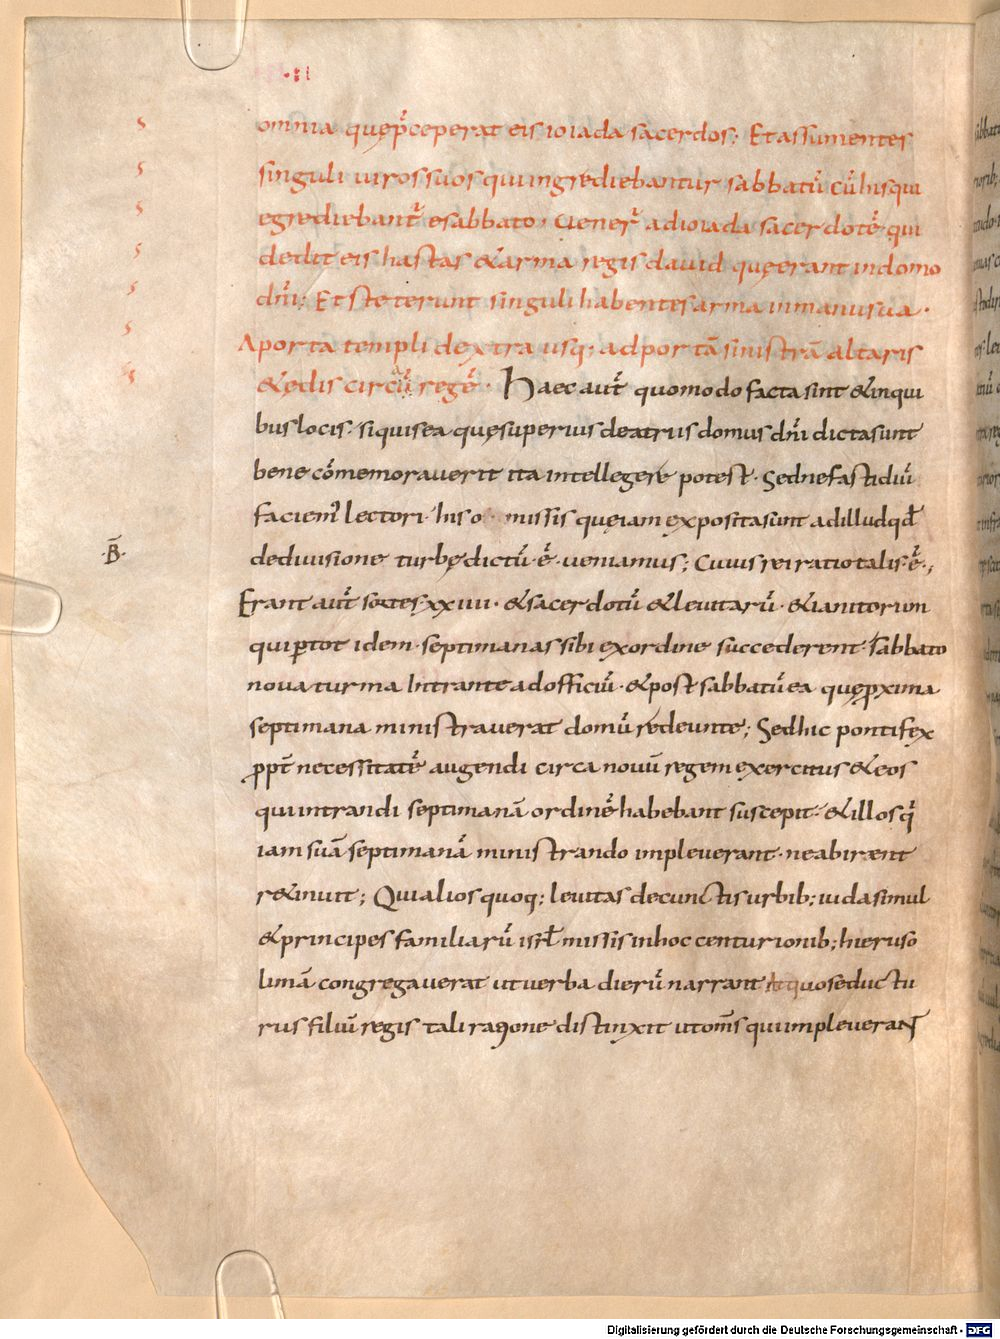 ·II
omnia quęp̄ceperat eis ioiada sacerdos; Et assumentes
singuli uiros suos qui ingrediebantur sabbatū cū hisqui
egrediebant᷒ esabbato · Uener᷒ adioiada sacerdotē qui
dedit eis hastas & arma regis dauid quęerant indomo
dn̄i; Et steterunt singuli habentes arma inmanu sua ·
A porta templi dextra usq; adportā sinistrā altaris
& ędis circū regē · Haec aut̄ quomodo facta sint & inqui
bus locis · siquis ea quę superius deatriis domus dn̄i dicta sunt
bene cōmemorauerit ita intellegere potest · Sed ne fastidiū
faciem᷒ lectori · his o missis quę iam exposita sunt ad illud qđ
dediuisione turbę dictū · ē · ueniamus; Cuius rei ratio talis · ē ·,
·B̄·
Erant aut̄ sortes · xx iiii · & sacerdotū & leuitarū · & ianitorum
qui ꝑ tot idem · septimanas sibi exordine succederent · sabbato
noua turma Intrante ad officiū · & post sabbatū ea quę ꝓxima
septimana ministrauerat domū redeunte; Sed hic pontifex
ꝓpt̄ necessitatē augendi circa nouū regem exercitus & eos
qui intrandi septimanā ordinē habebant suscepit · & illos q᷒
iam suā septimanā ministrando impleuerant · ne abirent
retinuit; Qui alios quoq; leuitas decunctis urbib; iuda simul
& principes familiarū isrł missis inhoc centurionib; hieruso
limā congregauerat ut uerba dierū narrant Atquos eductu
rus filiū regis tali ratione distinxit ut om̄s qui impleuerant
s
s
s
s
s
s
s
Digitalisierung gefördert durch die Deutsche Forschungsgemeinschaft · DFG